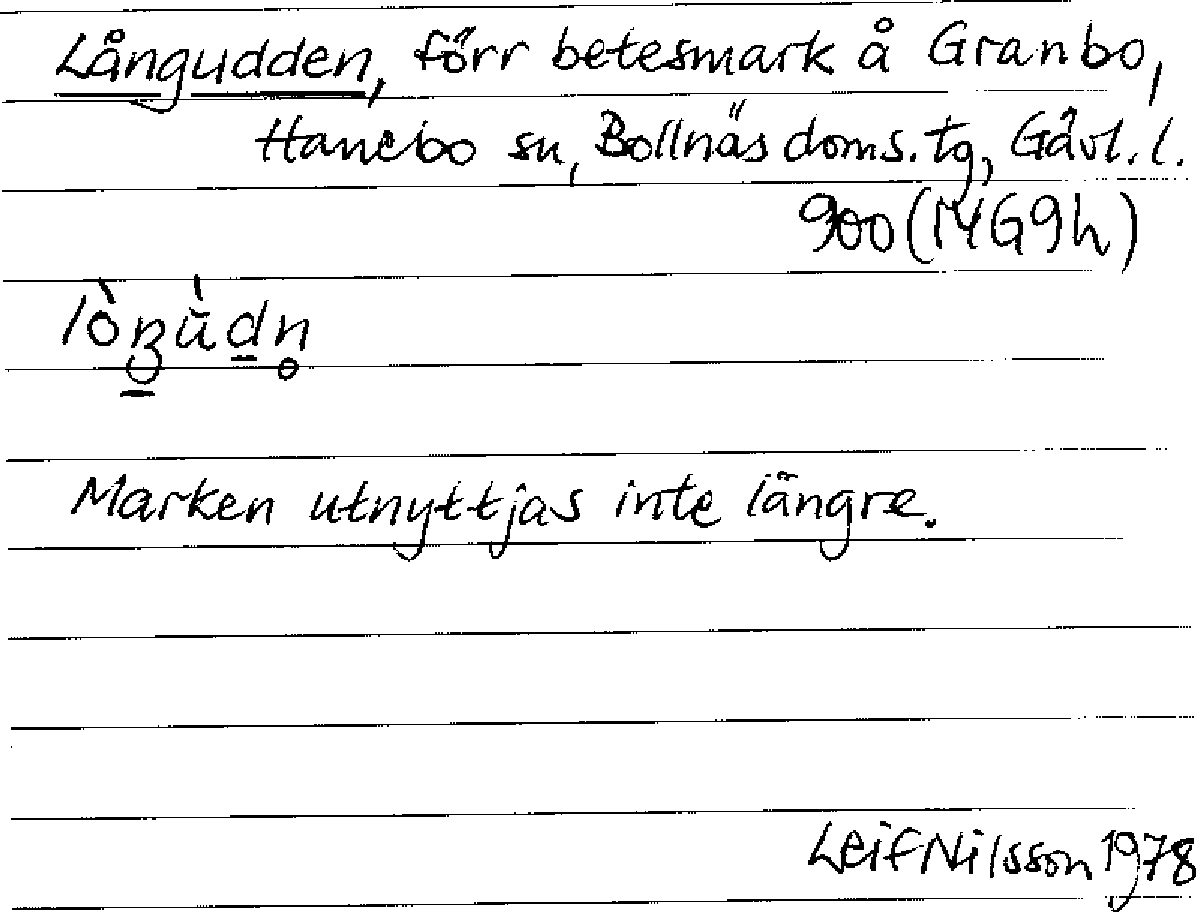 Långudden, förr betesmark å Granbo,
Hanebo sn, Bollnäs doms. tg, Gävl. l.
900 (14G9h)
Marken utnyttjas inte längre.
Leif Nilsson 1978